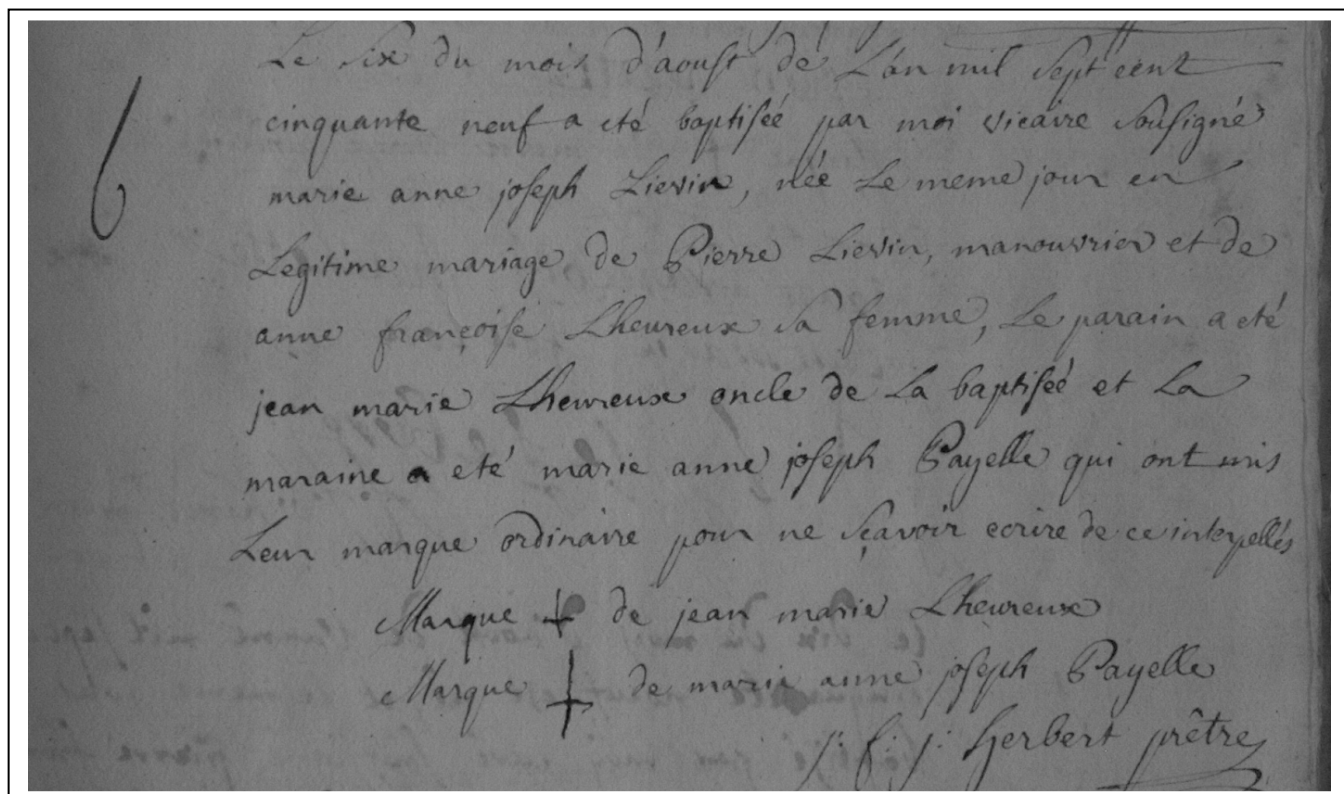 Le six du mois d'aoust de L'an mil sept cent
cinquante neuf a eté baptisée par moi vicaire sousigné
6
marie anne joseph Lievin, née Le meme jour en
Legitime mariage de Pierre Lievin, manouvrier et de
anne françoise Lheureux sa femme, Le parain a eté
jean marie Lheureux oncle de La baptisée et La
maraine a eté marie anne joseph Payelle qui ont mis
Leur marque ordinaire pour ne sçavoir ecrire de ce interpellés
Marque + de jean marie Lheureux
Marque + de marie anne joseph Payelle
j: f: j: herbert prêtre